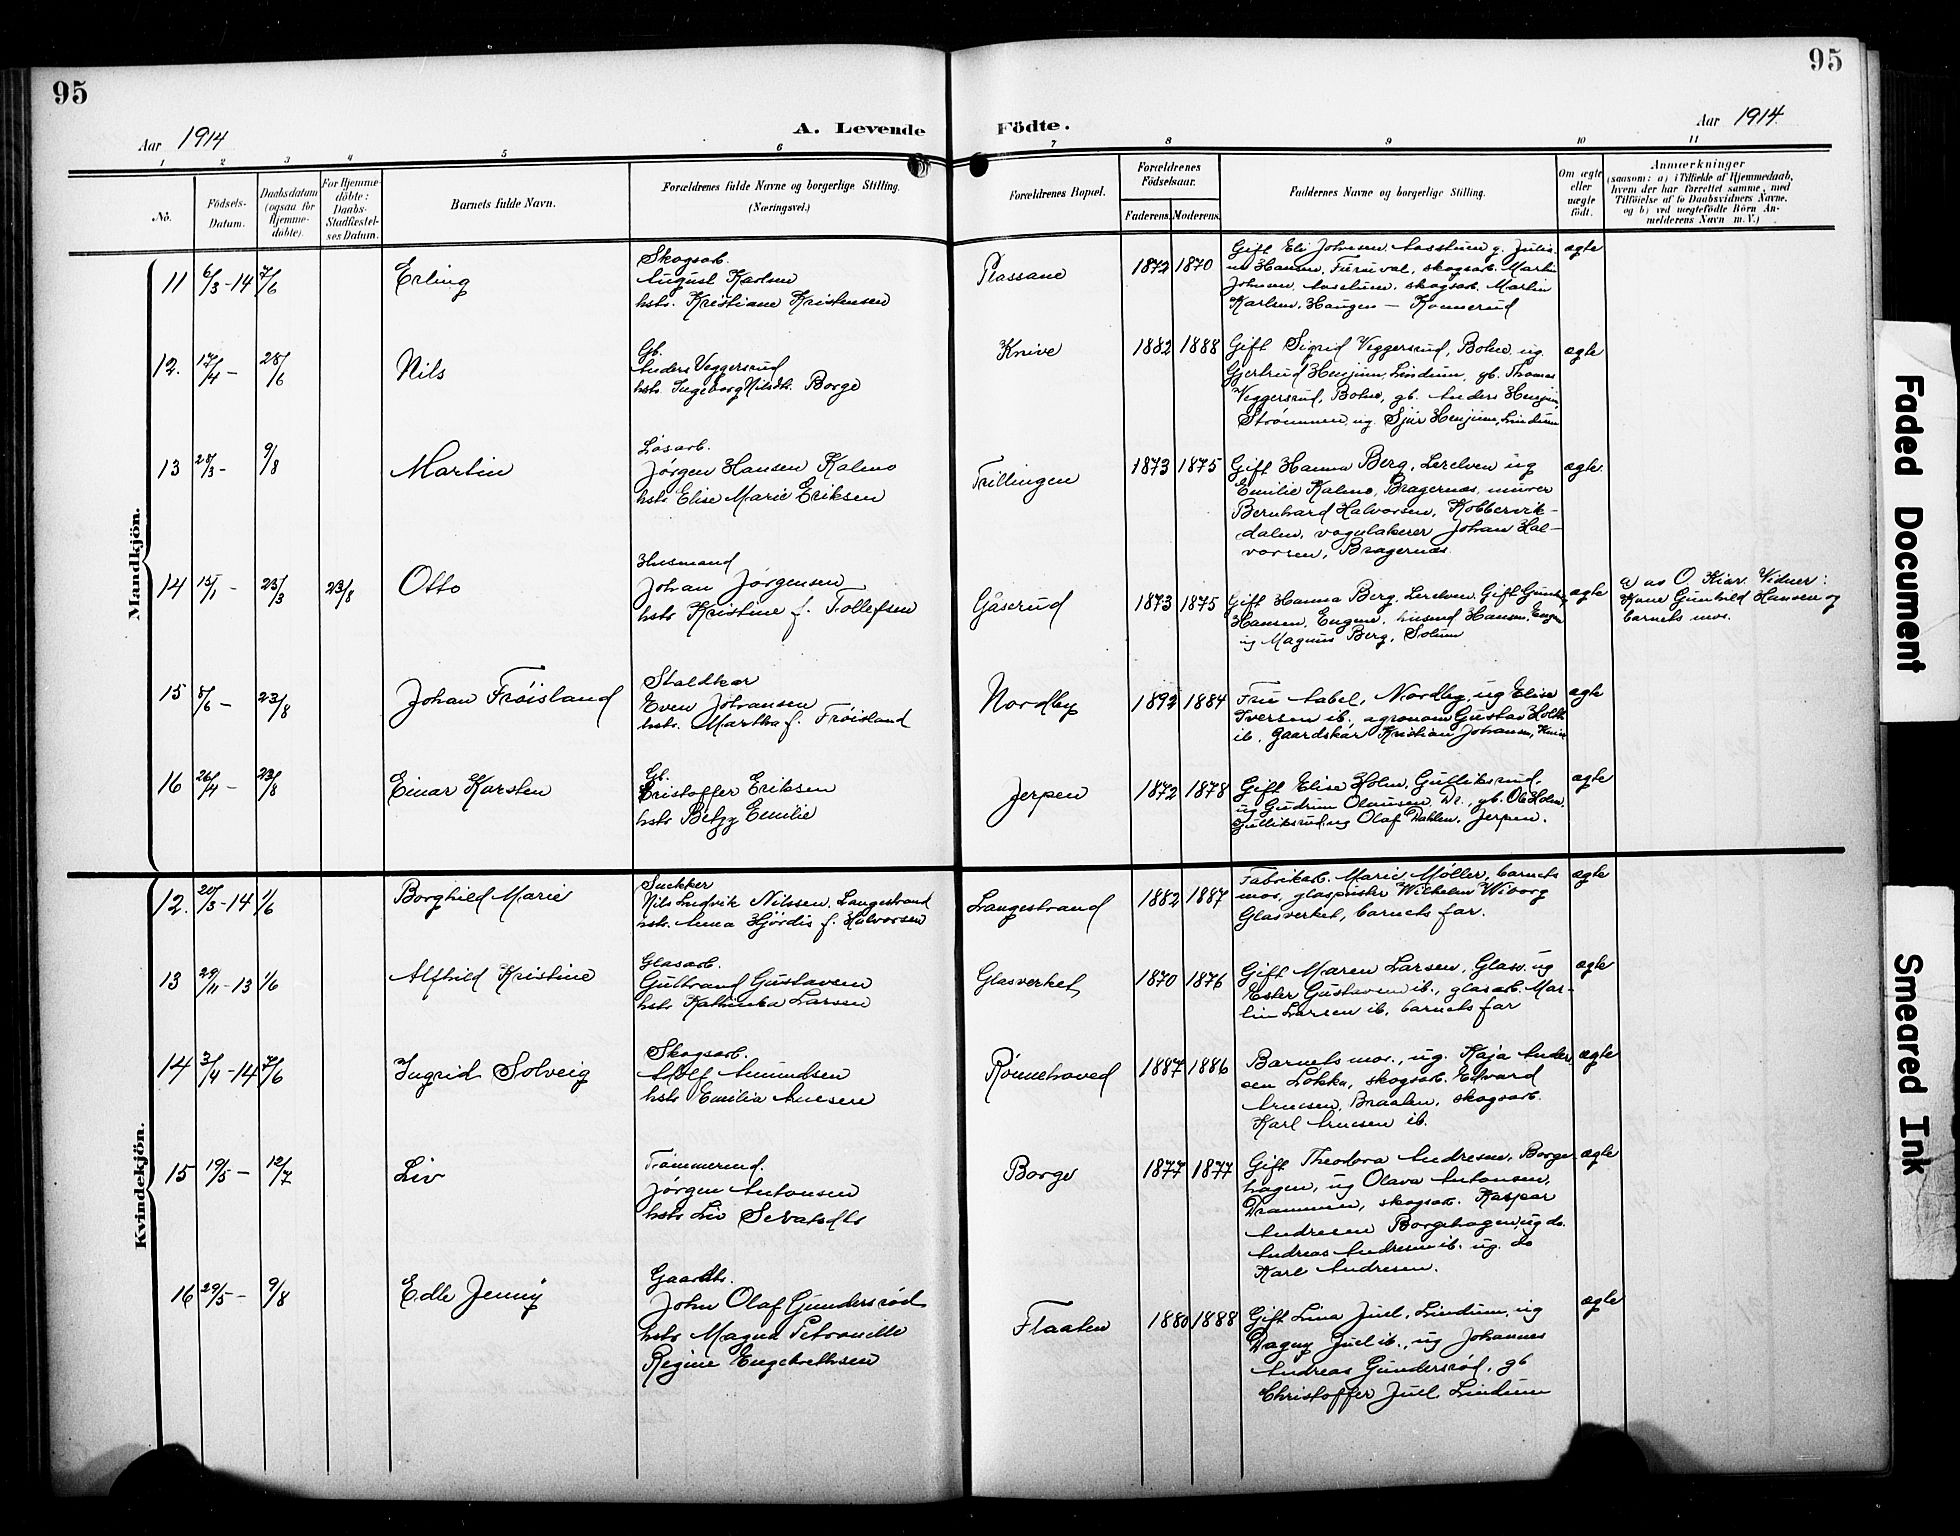 95
95
Aar 1914
A. Levende Födte.
Aar 1914.
1 2 3 4 5 6 7 8 9 10 11
No.
Födsels-Datum.
Daabsdatum (ogsaa for Hjemme-döbte).
For Hjemme-döbte: Daabs-Stadfæstel-ses Datum.
Barnets fulde Navn.
Forældrenes fulde Navne og borgerlige Stilling. (Næringsvei.)
Forældrenes Bopæl.
Forældrenes Födselsaar.
Faderens. Moderens.
Faddernes Navne og borgerlige Stilling.
Om ægte eller uægte födt.
Anmærkninger
(saasom: a) i Tilfælde af Hjemmedaab,
hvem der har forrettet samme, med
Tilföielse af to Daabsvidners Navne,
og b) ved uægtefödte Börn An-
melderens Navn m. V.)
Mandkjön.
11 6/3-14 7/6 Erling
Skogsarb.
August Karlsen
hstr. Kristiane Kristensen
Plassane 1872 1870
Gift Eli Johnsen, Aasstuen g. Julia-
ne Hansen, Furuval, skogsarb. Martin
Johnsen, Aasstuen, skogsarb. Martin
Karlsen, Haugen - Konnerud
ægte
12. 17/4 - 28/6 Nils
Gb.
Anders Veggersrud
hstr. Ingeborg Nilsdtr. Borge
Knive 1882 1888
Gift Sigrid Veggersrud, Bolno, ug.
Gjertrud Henjum, Lindum, gb. Thomas
Veggersrud, Bolno, gb. Anders Henjum,
Strømmen, ug. Sjur Henjum, Lindum
ægte
13 28/3 - 9/8 Martin
Løsarb.
Jørgen Hansen Kalmo
hstr. Elise Marie Eriksen
Trillingen 1873 1875
Gift Hanna Berg, Lerelven ug
Emilie Kalmo, Bragernæs, murer
Bernhard Halvorsen, Kobbervik-
dalen, vognlakerer Johan Hal-
vorsen, Bragernæs.
ægte.
14 15/1 - 23/3 23/8 Otto
Husmand
Johan Jørgensen
hstr. Kristine f. Tollefsen
Gåserud 1873 1875
Gift Hanna Berg, Lerelven, Gift Gunh.
Hansen, Eugene, husmd Hansen, Eugene
ug Magnus Berg, Solum
ægte
a) av O. Kiær. Vidner:
Kone Gunhild Hansen og
barnets mor.
15 8/6 - 23/8 Johan Frøisland
Staldkar
Even Johansen
hstr. Martha f. Frøisland
Nordby 1892 1884
Fru Aabel, Nordby, ug Elise
Iversen ib., agronom Gustav Holth
ib. gaardskar Kristian Johansen, Knive
ægte
16 26/4 - 23/8 Einar Karsten
Gb.
Cristoffer Eriksen
hstr. Betzy Emilie
Jerpen 1872 1878
Gift Elise Holm, Gulliksrud,
ug Gudrun Olausen, Dr., gb. Ole Holm,
Gulliksrud, ug Olaf Dahlen, Jerpen.
ægte
Kvindekjön.
12. 20/3-14 1/6 Borghild Marie
Snekker
Nils Ludvik Nilssen, Langestrand
hstr. Anna Hjørdis f. Halvorsen
Langestrand 1882 1887
Fabrikarb. Marie Møller, barnets
mor, glaspuster Wilhelm Wiborg
Glasverket, barnets far.
ægte
13 29/11-13 1/6 Alfhild Kristine
Glasarb.
Gulbrand Gustavsen
hstr. Kathinka Larsen
Glasverket 1870 1876
Gift Maren Larsen, Glasv. ug
Ester Gustavsen ib., glasarb. Mar-
tin Larsen ib, barnets far
ægte
14 3/4-14 7/6 Ingrid Solveig
Skogsarb.
Adolf Amundsen
hstr. Emilia Arnesen
Rønnehoved 1887 1886
Barnets mor, ug. Kaja Ander-
sen Lokka, skogsarb. Edvard
Arnesen, Braaten, skogsarb.
Karl Arnesen ib.
ægte
15 19/5 - 12/7 Liv
Tømmermd.
Jørgen Antonsen
hstr. Liv Sevatsdtr
Borge 1877 1877
Gift Theodora Andresen, Borge-
hagen, ug Olava Antonsen,
Drammen, skogsarb. Kaspar
Andresen Borgehagen, ug do.
Andreas Andresen ib. ug. do
Karl Andresen.
ægte
16 29/5 - 9/8 Edle Jenny
Gaardbr.
John Olaf Gundersrød
hstr. Magna Petronille
Regine Engebrethsen
Flaaten 1880 1888
Gift Lina Juel, Lindum, ug
Dagny Juel ib., ug Johannes
Andreas Gundersrød, gb
Christoffer Juel, Lindum
ægte
Faded Document
Smeared Ink